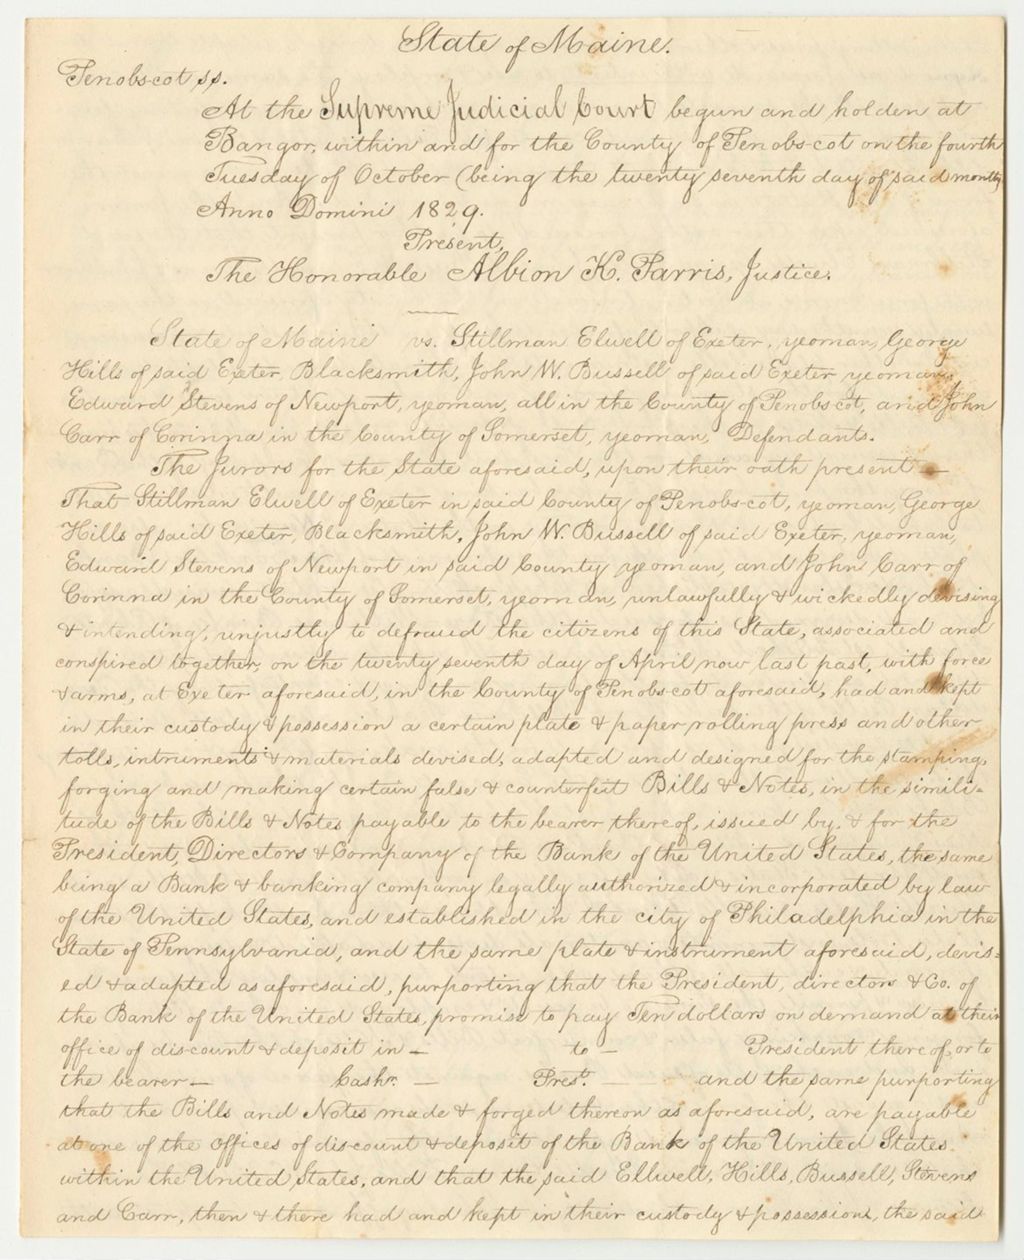 State of Maine.
Penobscot ss.
At the Supreme Judicial Court begun and holden at
Bangor, within and for the County of Penobscot on the fourth
Tuesday of October (being the twenty seventh day of said month)
Anno Domini 1829.
Present,
The Honorable Albion K. Parris, Justice.
State of Maine vs. Stillman Elwell of Exeter, yeoman, George
Hills of said Exeter Blacksmith, John W. Bussell of said Exeter yeoman,
Edward Stevens of Newport, yeoman, all in the County of Penobscot, and John
Carr of Corinna in the County of Somerset, yeoman, Defendants.
The Jurors for the State aforesaid, upon their oath present —
That Stillman Elwell of Exeter in said County of Penobscot, yeoman, George
Hills of said Exeter, Blacksmith, John W. Bussell of said Exeter, yeoman,
Edward Stevens of Newport in said County yeoman, and John Carr of
Corinna in the County of Somerset, yeoman, unlawfully & wickedly devising
& intending, unjustly to defraud the citizens of this State, associated and
conspired together, on the twenty seventh day of April now last past, with force
& arms, at Exeter aforesaid, in the County of Penobscot aforesaid, had and kept
in their custody & possession a certain plate & paper rolling press and other
tolls, intruments & materials devised, adapted and designed for the stamping,
forging and making certain false & counterfeit Bills & Notes, in the simili-
tude of the Bills & Notes payable to the bearer thereof, issued by, & for the
President, Directors & Company of the Bank of the United States, the same
being a Bank & banking company legally authorized & incorporated by law
of the United States, and established in the city of Philadelphia in the
State of Pennsylvania, and the same plate & instrument aforesaid, devis-
ed & adapted as aforesaid, purporting that the President, directors & Co. of
the Bank of the United States, promise to pay Ten dollars on demand at their
office of discount & deposit in — to — President thereof, or to
the bearer — Cashr. — Prest. — and the same purporting
that the Bills and Notes made & forged thereon as aforesaid, are payable
at one of the offices of discount & deposit of the Bank of the United States
within the United States, and that the said Ellwell, Hills, Bussell, Stevens
and Carr, then & there had and kept in their custody & possession, the said